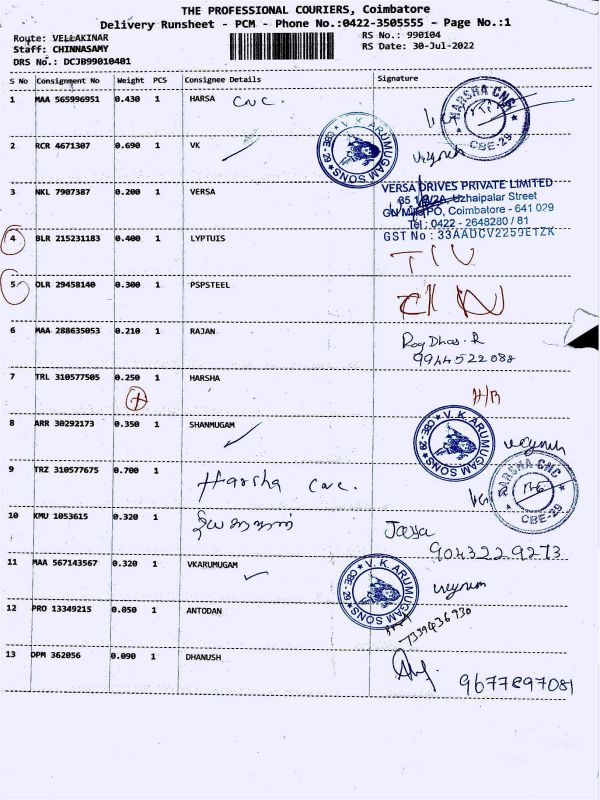 THE PROFESSIONAL COURIERS, Coimbatore
Delivery Runsheet - PCM - Phone No.:0422-3505555 - Page No.:1
Route: VELLAKINAR
RS No.: 990104
Staff: CHINNASAMY
RS Date: 30-Jul-2022
DRS No.: DCJB99010401
S No Consignment No Weight PCS Consignee Details Signature
1 MAA 565996951 0.430 1 HARSA CNC.
HARSHA CNC
CBE-29
2 RCR 4671307 0.690 1 VK
V.K.ARUMUGAM SONS
CBE-29
3 NKL 7907387 0.200 1 VERSA
VERSA DRIVES PRIVATE LIMITED
Uzhaipalar Street
Coimbatore - 641 029
Tel : 0422 - 2648280 / 81
GST No : 33AADCV2259ETZK
4 BLR 215231183 0.400 1 LYPTUIS
5 OLR 29458140 0.300 1 PSPSTEEL
6 MAA 288635053 0.210 1 RAJAN
9944522088
7 TRL 310577505 0.250 1 HARSHA
8 ARR 30292173 0.350 1 SHANMUGAM
V.K.ARUMUGAM SONS
CBE-29
9 TRZ 310577675 0.700 1
Harsha cnc.
HARSHA CNC
CBE-29
10 KMU 1053615 0.320 1
9043229273
11 MAA 567143567 0.320 1 VKARUMUGAM
V.K.ARUMUGAM SONS
CBE-29
12 PRO 13349215 0.050 1 ANTODAN
13 OPM 362056 0.090 1 DHANUSH
9677897081